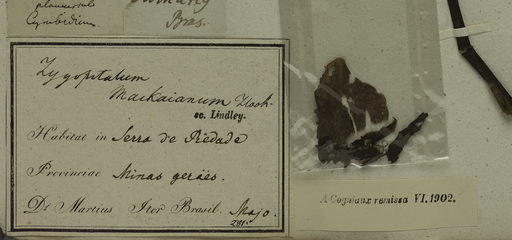 Cymbidium
Bras.
Zygopetalum
Mackaianum Hook
sc. Lindley.
Habitat in Serra de Piedade
Provinciae Minas geräes.
Dr Martius Iter Brasil. Majo.
A Cogniaux remissa VI. 1902.